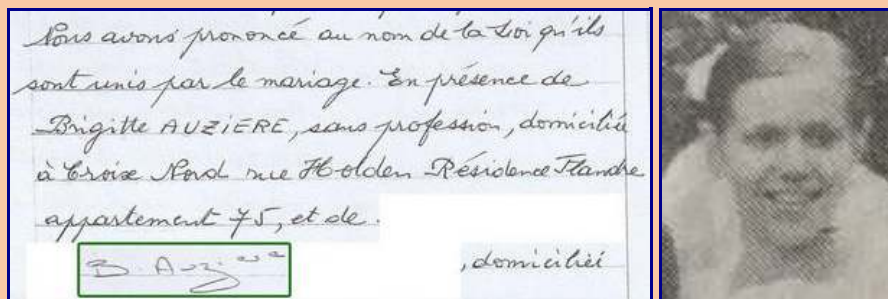 Nous avons prononcé au nom de la Loi qu'ils
sont unis par le mariage. En présence de
Brigitte AUZIERE, sans profession, domiciliée
à Croix Nord rue Holden Résidence Flandre
appartement 75, et de
B. Auzière
, domicilié